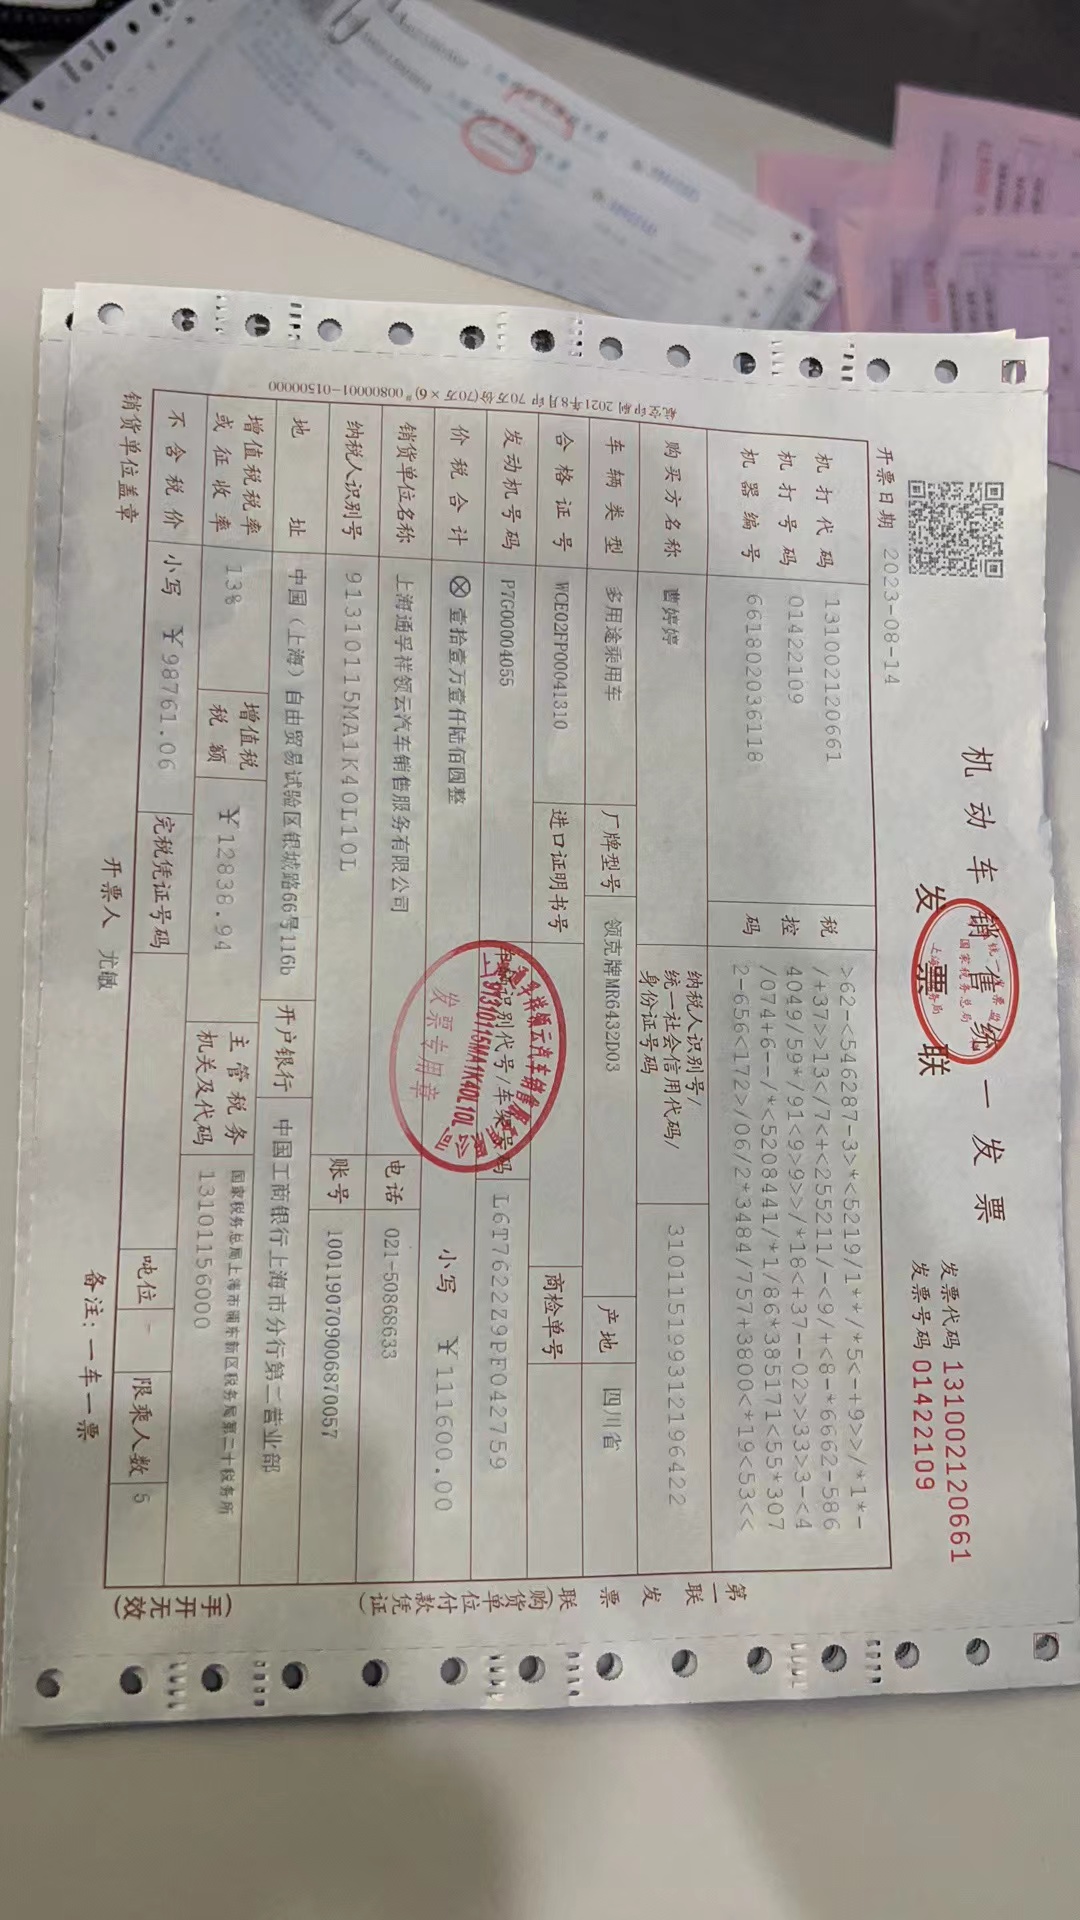 机动车销售统一发票
发票联
发票代码 131002120661
发票号码 01422109
开票日期 2023-08-14
机打代码 131002120661
机打号码 01422109
机器编号 661802036118
税控码
>62-<546287-3>*<5219/1**/*5<-+9>>/*1*-
/+37>>13</7<+<255211/-<9/+<8-*6662-586
4049/59*/91<9>9>>/*18<+37--02>>33>3-<4
/074+6--/*<5208441/*1/86*385171<55*307
2-656<172>/06/2*3484/757+3800<*19<53<<
购买方名称 曹婷婷
纳税人识别号/
统一社会信用代码/
身份证号码
310115199312196422
车辆类型 多用途乘用车 厂牌型号 领克牌MR6432D03 产地 四川省
合格证号 WCE02FP00041310 进口证明书号 商检单号
发动机号码 P7G00004055 车辆识别代号/车架号码 L6T7622Z9PF042759
价税合计 ⊗壹拾壹万壹仟陆佰圆整 小写 ￥111600.00
销货单位名称 上海通孚祥领云汽车销售服务有限公司 电话 021-50868633
纳税人识别号 91310115MA1K40L10L 账号 1001190709006870057
地址 中国（上海）自由贸易试验区银城路66号116b 开户银行 中国工商银行上海市分行第二营业部
增值税税率
或征收率
13%
增值税
税额
￥12838.94
主管税务
机关及代码
国家税务总局上海市浦东新区税务局第二十税务所
13101156000
不含税价 小写 ￥98761.06 完税凭证号码 吨位 - 限乘人数 5
销货单位盖章 开票人 尤敏 备注:一车一票
第一联 发票联(购货单位付款凭证)
(手开无效)
航空印刷 2021年8月印 70万份(70万×6)*00800001-01500000
91310115MA1K40L10L
发票专用章
国家税务总局